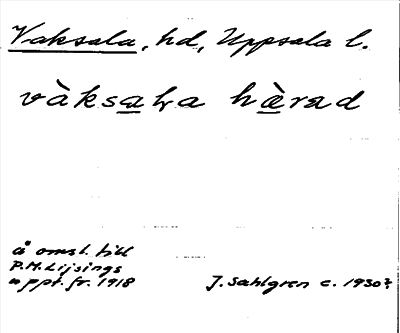 Vaksala, hd, Uppsala l.
vàksaḷa hàrad
å omsl. till
P.M. Lijsings
uppt. fr. 1918
J. Sahlgren c. 1930?